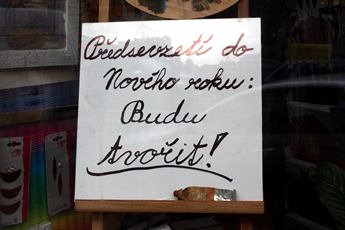 Předsevzetí do
Nového roku:
Budu
tvořit!